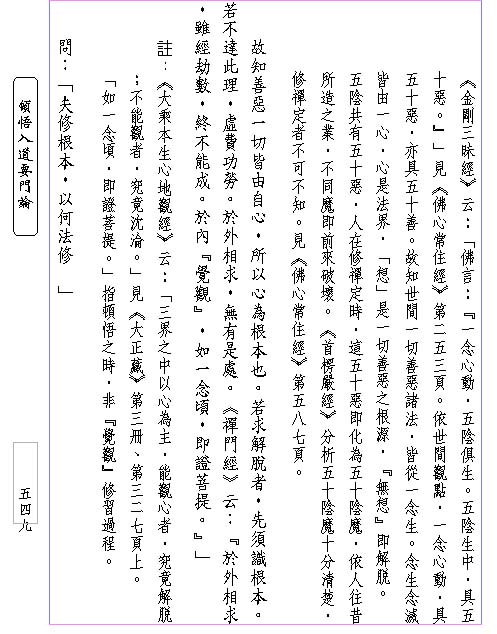 《金剛三昧經》云：「佛言：『一念心動，五陰俱生。五陰生中，具五
十惡。』」見《佛心常住經》第二五三頁。依世間觀點，一念心動，具
五十惡，亦具五十善。故知世間一切善惡諸法，皆從一念生。念生念滅
皆由一心，心是法界，「想」是一切善惡之根源，『無想』即解脫。
五陰共有五十惡，人在修禪定時，這五十惡即化為五十陰魔，依人往昔
所造之業，不同魔即前來破壞。《首楞嚴經》分析五十陰魔十分清楚，
修禪定者不可不知。見《佛心常住經》第五八七頁。
故知善惡一切皆由自心，所以心為根本也。若求解脫者，先須識根本。
若不達此理，虛費功勞。於外相求，無有是處。《禪門經》云：『於外相求
，雖經劫數，終不能成。於內『覺觀』，如一念頃，即證菩提。』」
註：《大乘本生心地觀經》云：「三界之中以心為主，能觀心者，究竟解脫
；不能觀者，究竟沈淪。」見《大正藏》第三冊、第三二七頁上。
「如一念頃，即證菩提。」指頓悟之時，非『覺觀』修習過程。
問：「夫修根本，以何法修　」
頓悟入道要門論
五四九